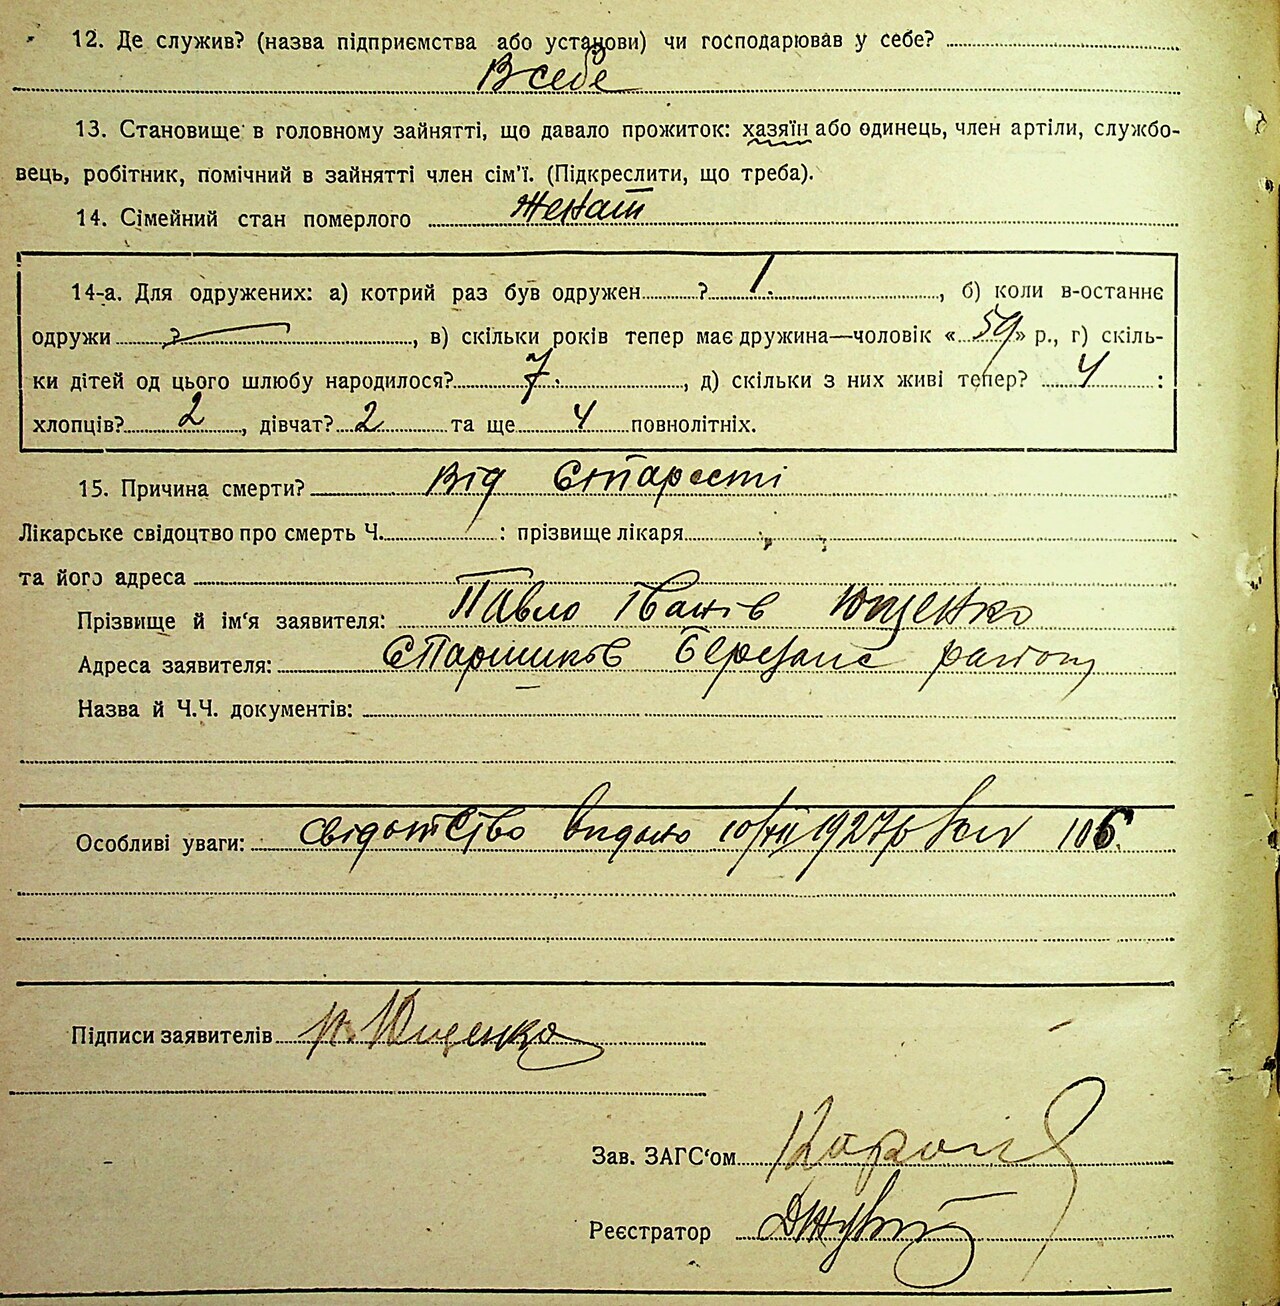 12. Де служив? (назва підприємства або установи) чи господарював у себе?
В себе
13. Становище в головному зайнятті, що давало прожиток: хазяїн або одинець, член артіли, службо-
вець, робітник, помічний в зайнятті член сім'ї. (Підкреслити, що треба).
14. Сімейний стан померлого Женат
14-а. Для одружених: а) котрий раз був одружен ? 1. , б) коли в-останнє
одружи ? , в) скільки років тепер має дружина—чоловік «59» р., г) скіль-
ки дітей од цього шлюбу народилося? 7. , д) скільки з них живі тепер? 4 :
хлопців? 2 , дівчат? 2 та ще 4 повнолітніх.
15. Причина смерти? від старости
Лікарське свідоцтво про смерть Ч. : прізвище лікаря
та його адреса
Прізвище й ім'я заявителя: Павло Іванів Ющенко
Адреса заявителя: Старинків Березанс район
Назва й Ч.Ч. документів:
Особливі уваги: свідотство видано 10/XII 1927р 106.
Підписи заявителів Ющенко
Зав. ЗАГС'ом
Реєстратор